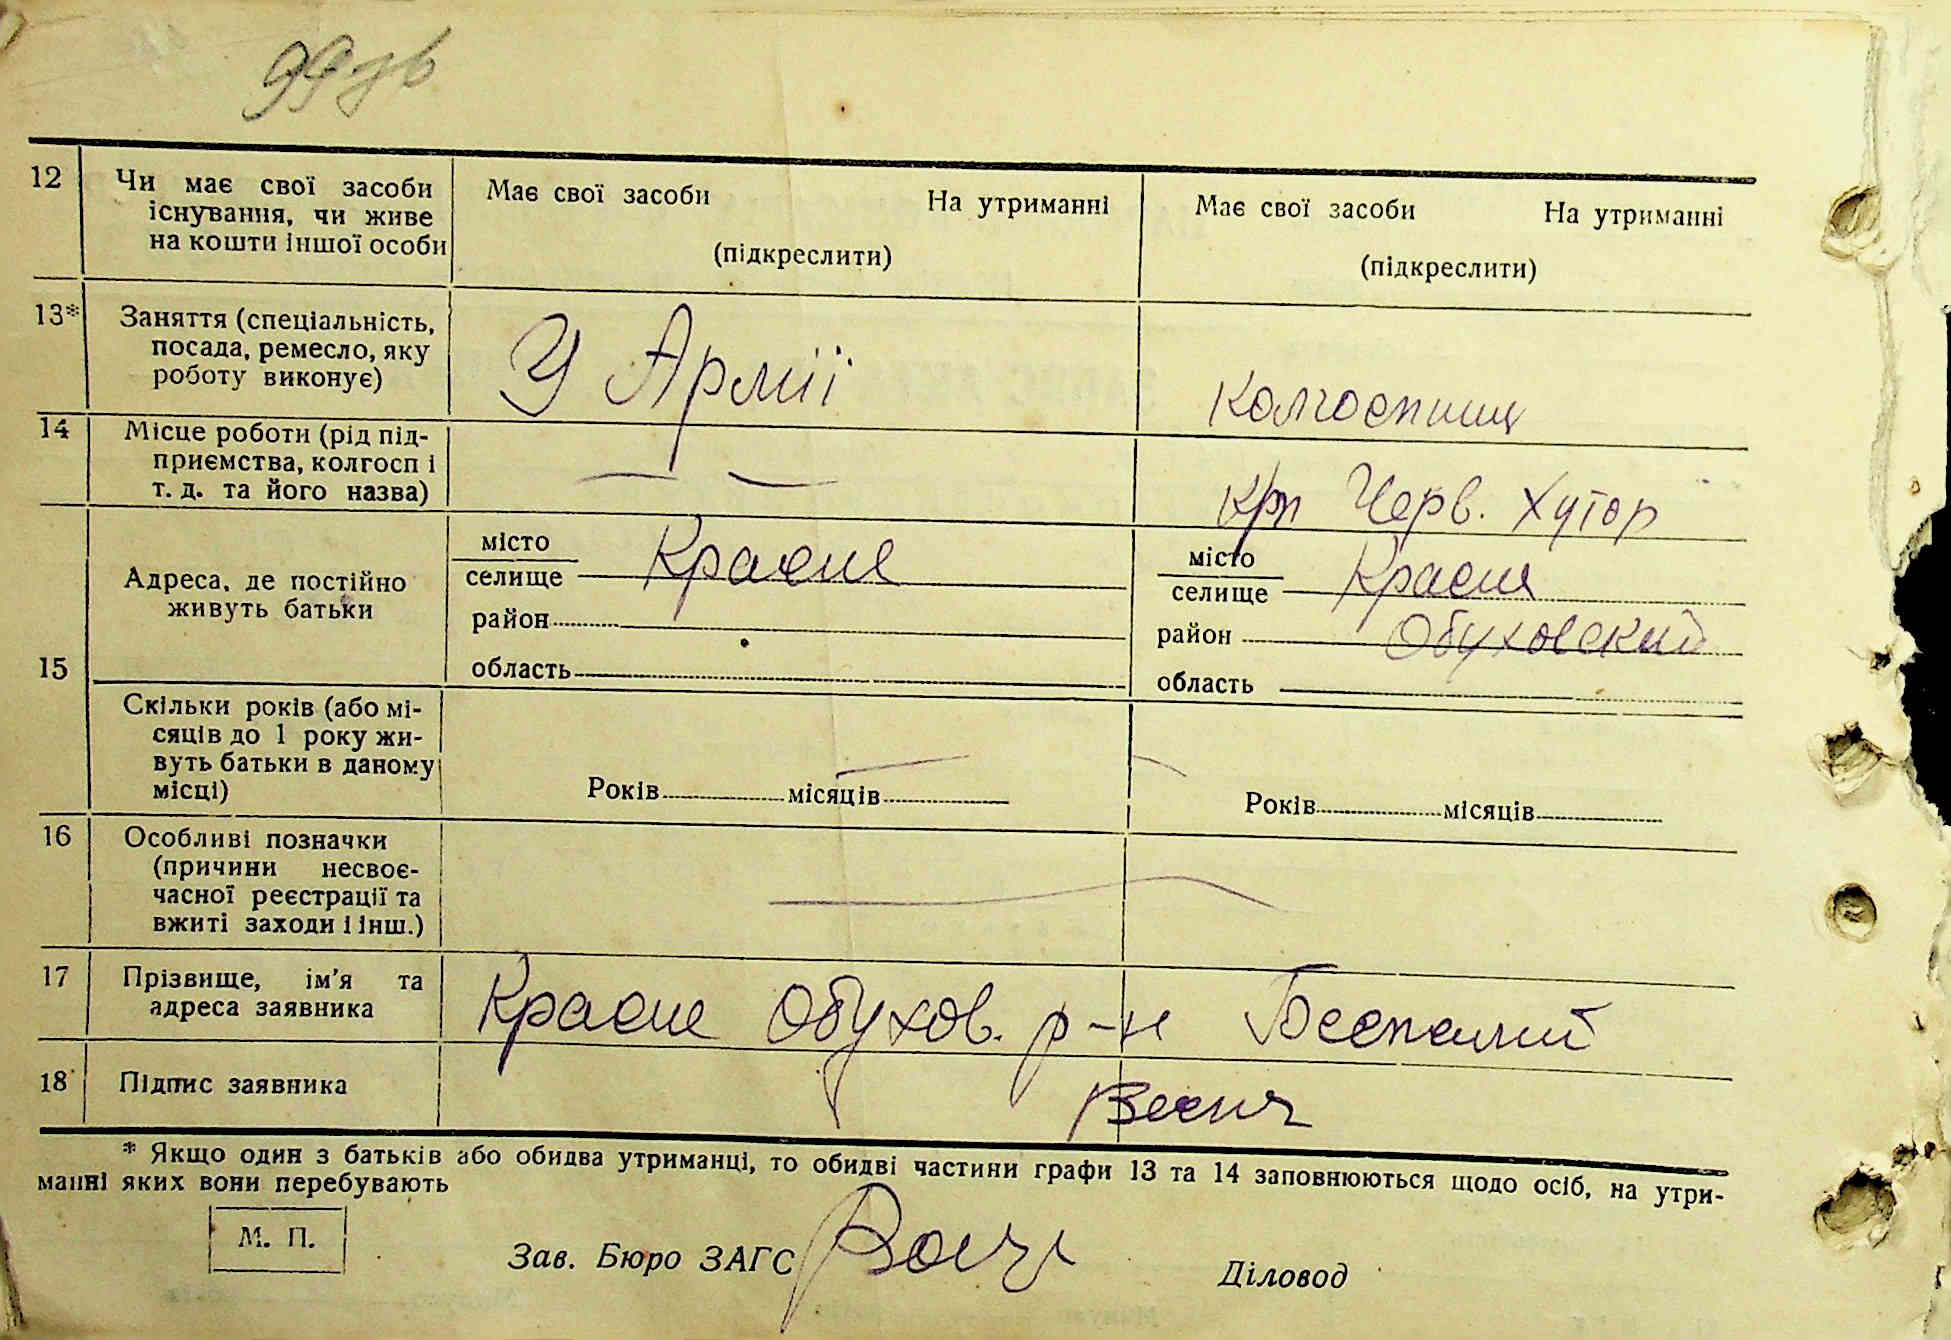 99 зв
12 Чи має свої засоби існування, чи живе на кошти іншої особи
Має свої засоби На утриманні
(підкреслити)
Має свої засоби На утриманні
(підкреслити)
13* Заняття (спеціальність, посада, ремесло, яку роботу виконує)
У Армії
колгоспниц
14 Місце роботи (рід під-
приємства, колгосп і
т. д. та його назва)
Черв. Хутор
15
Адреса, де постійно
живуть батьки
місто
селище Красне
район
область
місто
селище Красня
район Обуховский
область
Скільки років (або мі-
сяців до 1 року жи-
вуть батьки в даному
місці)
Років місяців
Років місяців
16 Особливі позначки
(причини несвоє-
часної реєстрації та
вжиті заходи і інш.)
17 Прізвище, ім'я та
адреса заявника
Красне Обухов. р-н Беспалий
18 Підпис заявника
* Якщо один з батьків або обидва утриманці, то обидві частини графи 13 та 14 заповнюються щодо осіб, на утри-
манні яких вони перебувають
М. П.
Зав. Бюро ЗАГС
Діловод